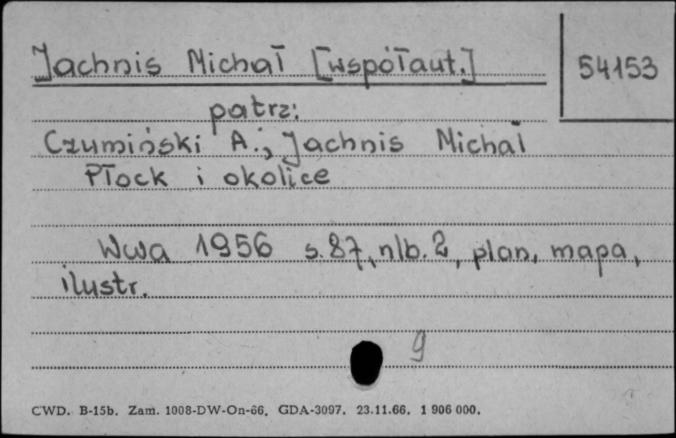 Jachnis Michał [współaut.]
54153
patrz:
Czumiński A., Jachnis Michał
Płock i okolice
Wwa 1956 s. 87, nlb. 2, plan, mapa,
ilustr.
9
CWD. B-15b. Zam. 1008-DW-On-66. GDA-3097. 23.11.66. 1 906 000.